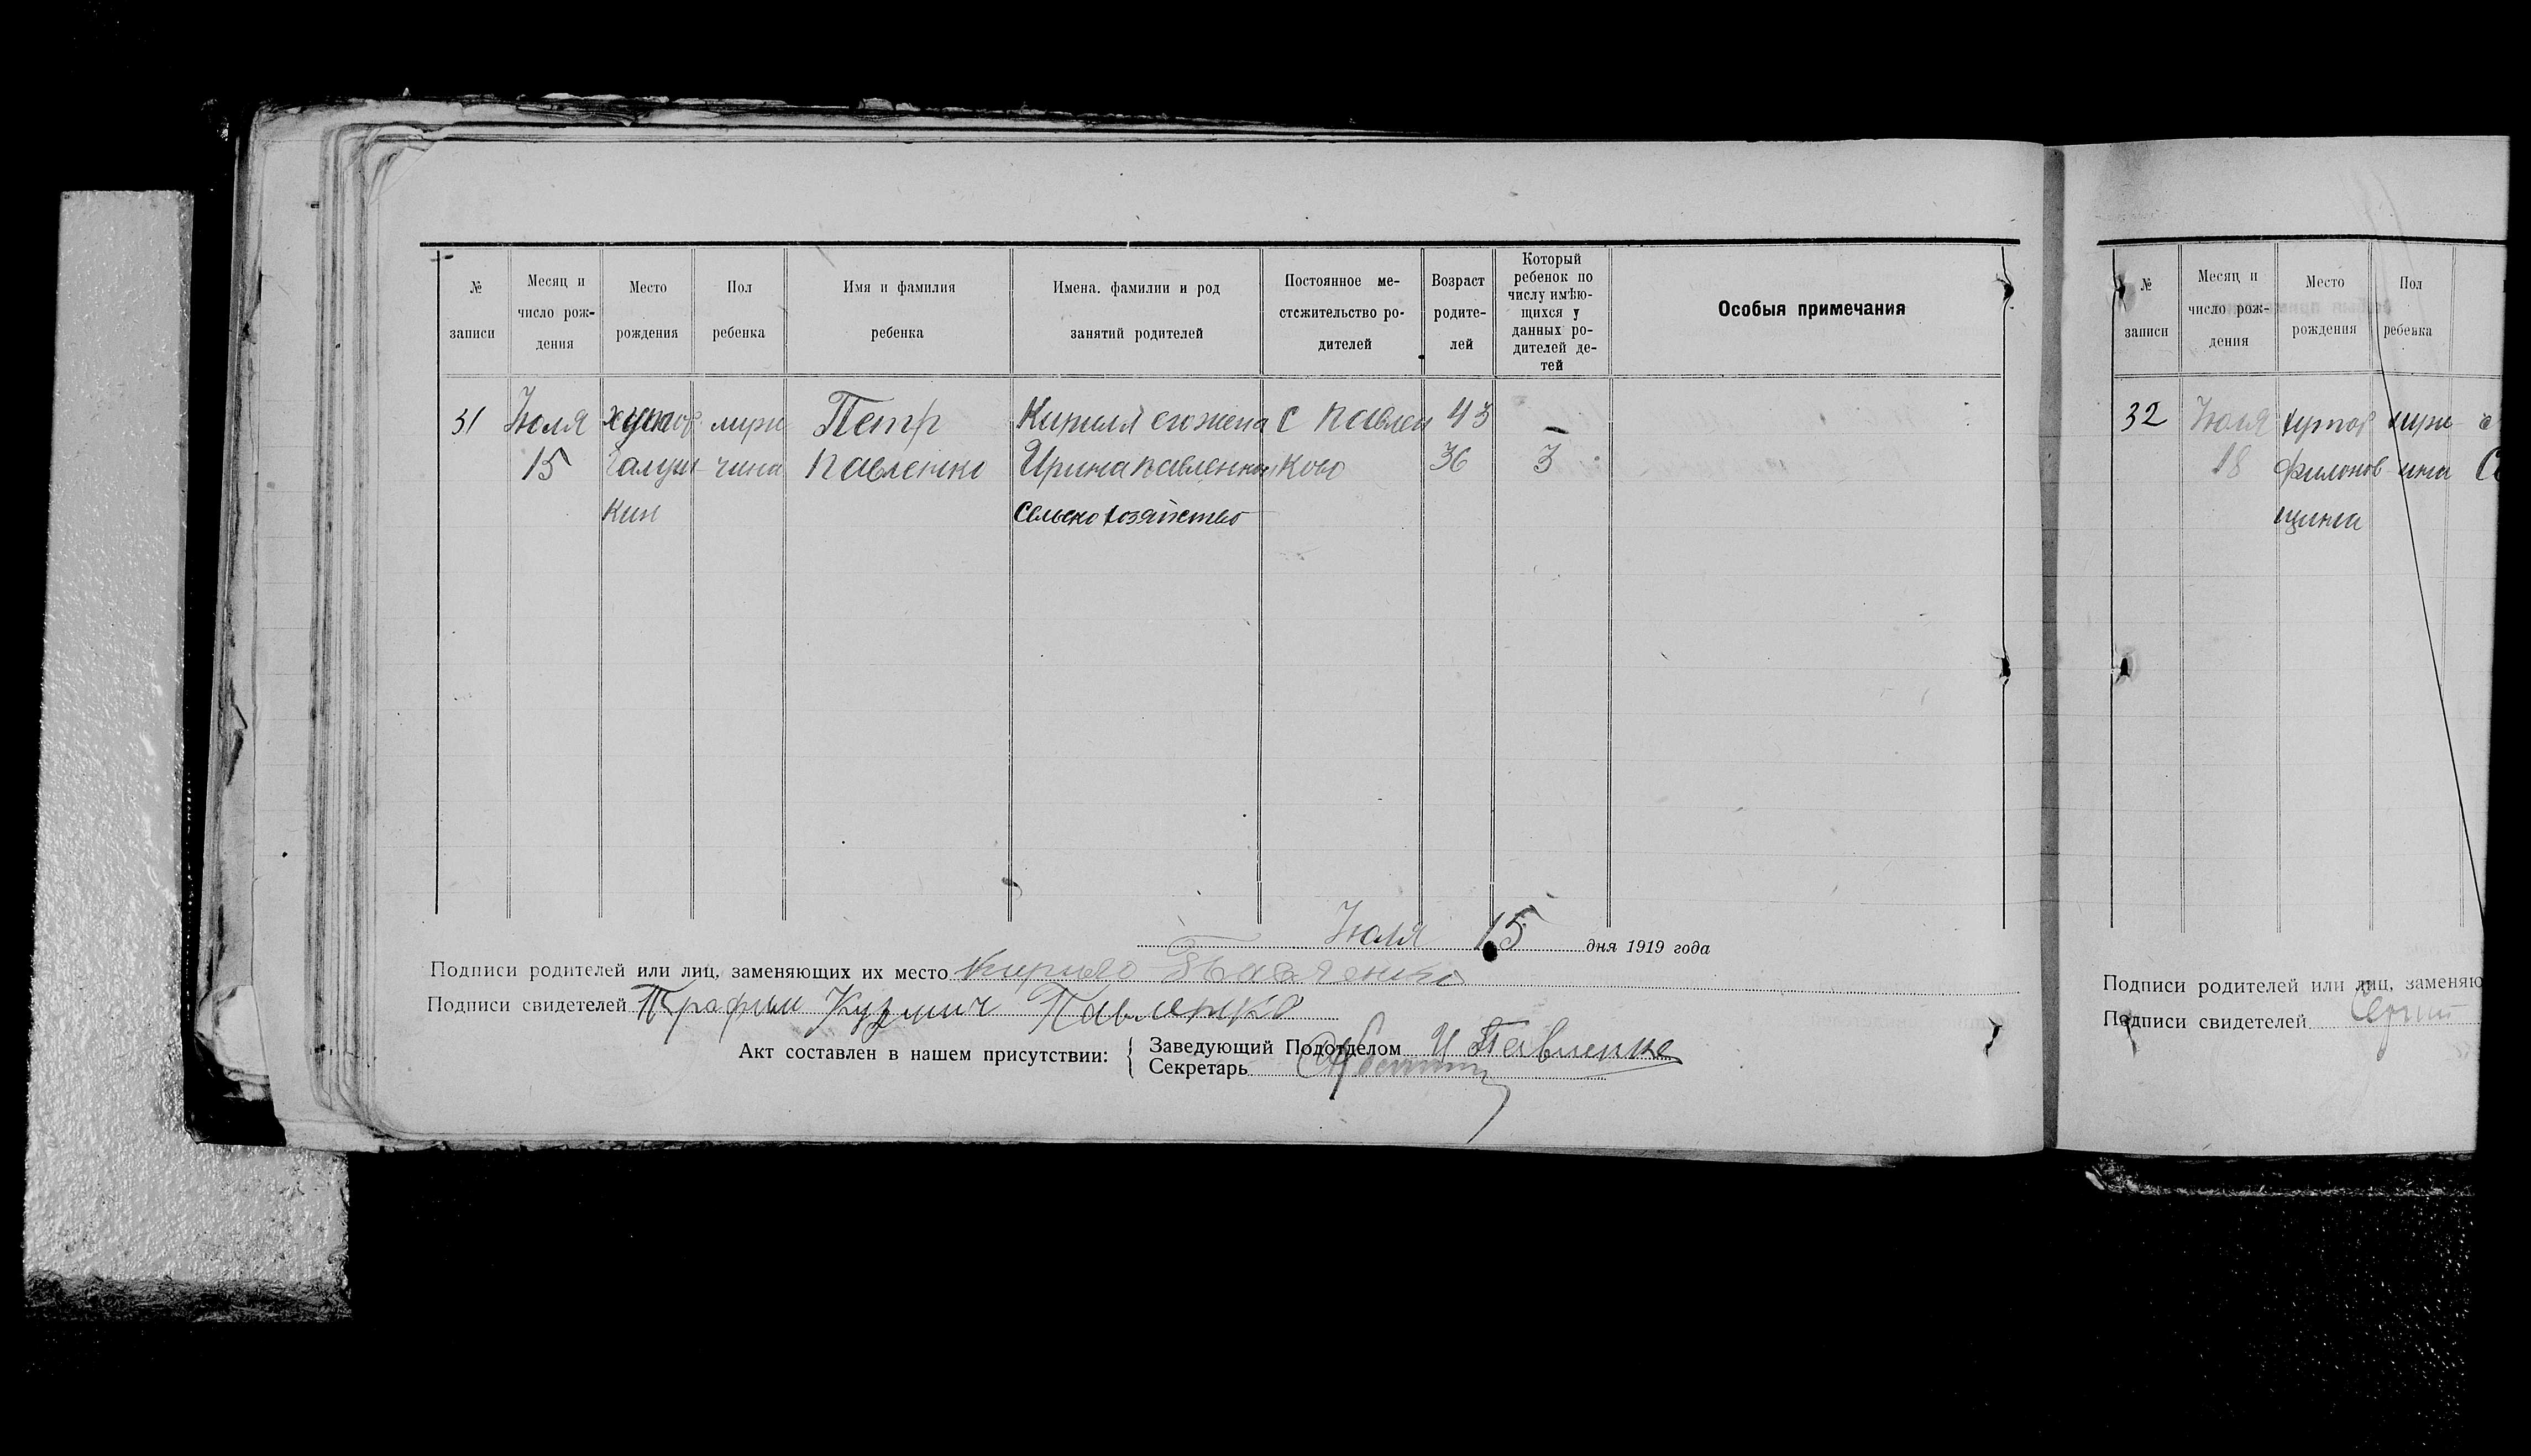 № записи
Месяц и число рож-дения
Место рождения
Пол ребенка
Имя и фамилия ребенка
Имена. фамилии и род занятий родителей
Постоянное ме-стожительство ро-дителей
Возраст родите-лей
Который ребенок по числу имѣю-щихся у данных ро-дителей де-тей
Особыя примечания
31 Июля хутор мущ Петр Кирилл его жена с Павлен 43
15 Галуш чина Павленко Ирина Павленко ково 36 3
кин Сельско хозяйство
Июля 15 дня 1919 года
Подписи родителей или лиц, заменяющих их место Кирило Павленко
Подписи свидетелей Трафим Кузмич Павленко
Акт составлен в нашем присутствии:
Заведующий Подотделом И Павленко
Секретарь
№ записи
Месяц и число рож-дения
Место рождения
Пол ребенка
32 Июля хутор
18 Филонов
щина
Подписи родителей или лиц, заменяю
Подписи свидетелей Сергий